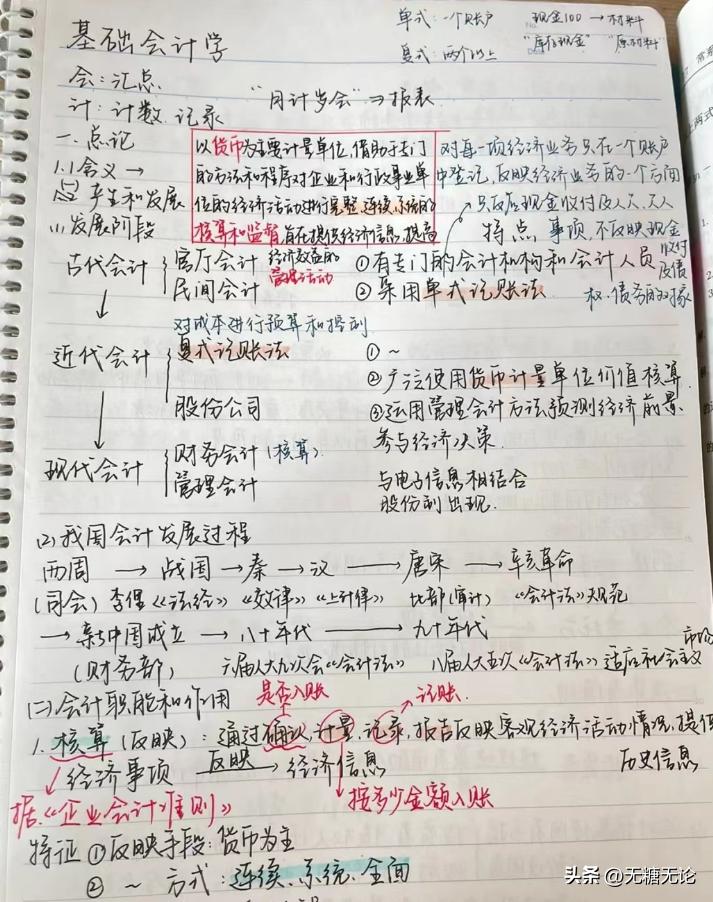 基础会计学
单式：一个账户 现金100 → 材料
复式：两个以上 "库存现金" "原材料"
会：汇总
计：计数、记录 "日计岁会" → 报表
一、总论
以货币为主要计量单位，借助于专门
的方法和程序对企业和行政事业单
位的经济活动进行完整、连续、系统的
核算和监督，旨在提供经济信息、提高
经济效益的
管理活动
对每一项经济业务只在一个账户
中登记，反映经济业务的一个方面
只反应现金收付及人欠、欠人
事项，不反映现金
收付
及债
权、债务的对象
1.1 含义 →
产生和发展
(1) 发展阶段
特点
古代会计 官厅会计 ①有专门的会计机构和会计人员
民间会计 ②采用单式记账法
对成本进行预算和控制
近代会计 复式记账法 ①～
②广泛使用货币计量单位价值核算
股份公司 ③运用管理会计方法预测经济前景、
参与经济决策
现代会计 财务会计（核算）
管理会计 与电子信息相结合
股份制出现.
(2) 我国会计发展过程
西周 → 战国 → 秦 → 汉 → 唐宋 → 辛亥革命
(司会) 李悝《法经》《效律》《上计律》 比部(审计) 《会计法》规范
→ 新中国成立 → 八十年代 → 九十年代
(财务部) 六届人大九次会《会计法》 八届人大五次《会计法》适应社会主义
市场
(二) 会计职能和作用 是否入账 记账.
1. 核算(反映)：通过确认、计量、记录、报告反映客观经济活动情况，提供
历史信息
经济事项 反映 → 经济信息
据《企业会计准则》 按多少金额入账
特征 ①反映手段：货币为主
② ～ 方式：连续、系统、全面
头条 @无糖无论